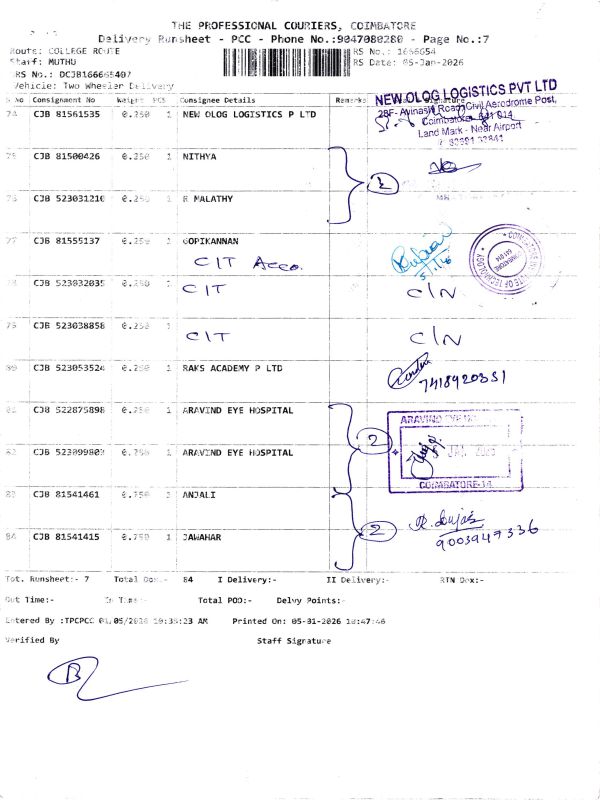 THE PROFESSIONAL COURIERS, COIMBATORE
Delivery Runsheet - PCC - Phone No.:9047080280 - Page No.:7
Route: COLLEGE ROUTE
RS No.: 1666654
Staff: MUTHU
RS Date: 05-Jan-2026
DRS No.: DCJB166665407
Vehicle: Two Wheeler Delivery
S No Consignment No Weight PCS Consignee Details Remarks Signature
NEW OLOG LOGISTICS PVT LTD
28F- Avinashi Road, Civil Aerodrome Post,
Coimbatore - 641 014.
Land Mark - Near Airport
74 CJB 81561535 0.250 1 NEW OLOG LOGISTICS P LTD
75 CJB 81500426 0.250 1 NITHYA
76 CJB 523031210 0.250 1 R MALATHY
77 CJB 81555137 0.250 1 GOPIKANNAN
CIT Acco.
5/1/26
78 CJB 523032035 0.250 1 CIT C/N
79 CJB 523038858 0.250 1 CIT C/N
80 CJB 523053524 0.250 1 RAKS ACADEMY P LTD
7418920331
81 CJB 522875898 0.250 1 ARAVIND EYE HOSPITAL
2
ARAVIND EYE
82 CJB 523099803 0.250 1 ARAVIND EYE HOSPITAL
JAN 2026
COIMBATORE-14
83 CJB 81541461 0.250 1 ANJALI
2
9003947336
84 CJB 81541415 0.250 1 JAWAHAR
Tot. Runsheet:- 7 Total Dox:- 84 I Delivery:- II Delivery:- RTN Dox:-
Out Time:- In Time:- Total POD:- Delvy Points:-
Entered By :TPCPCC 01/05/2026 10:35:23 AM Printed On: 05-01-2026 10:47:46
Verified By Staff Signature